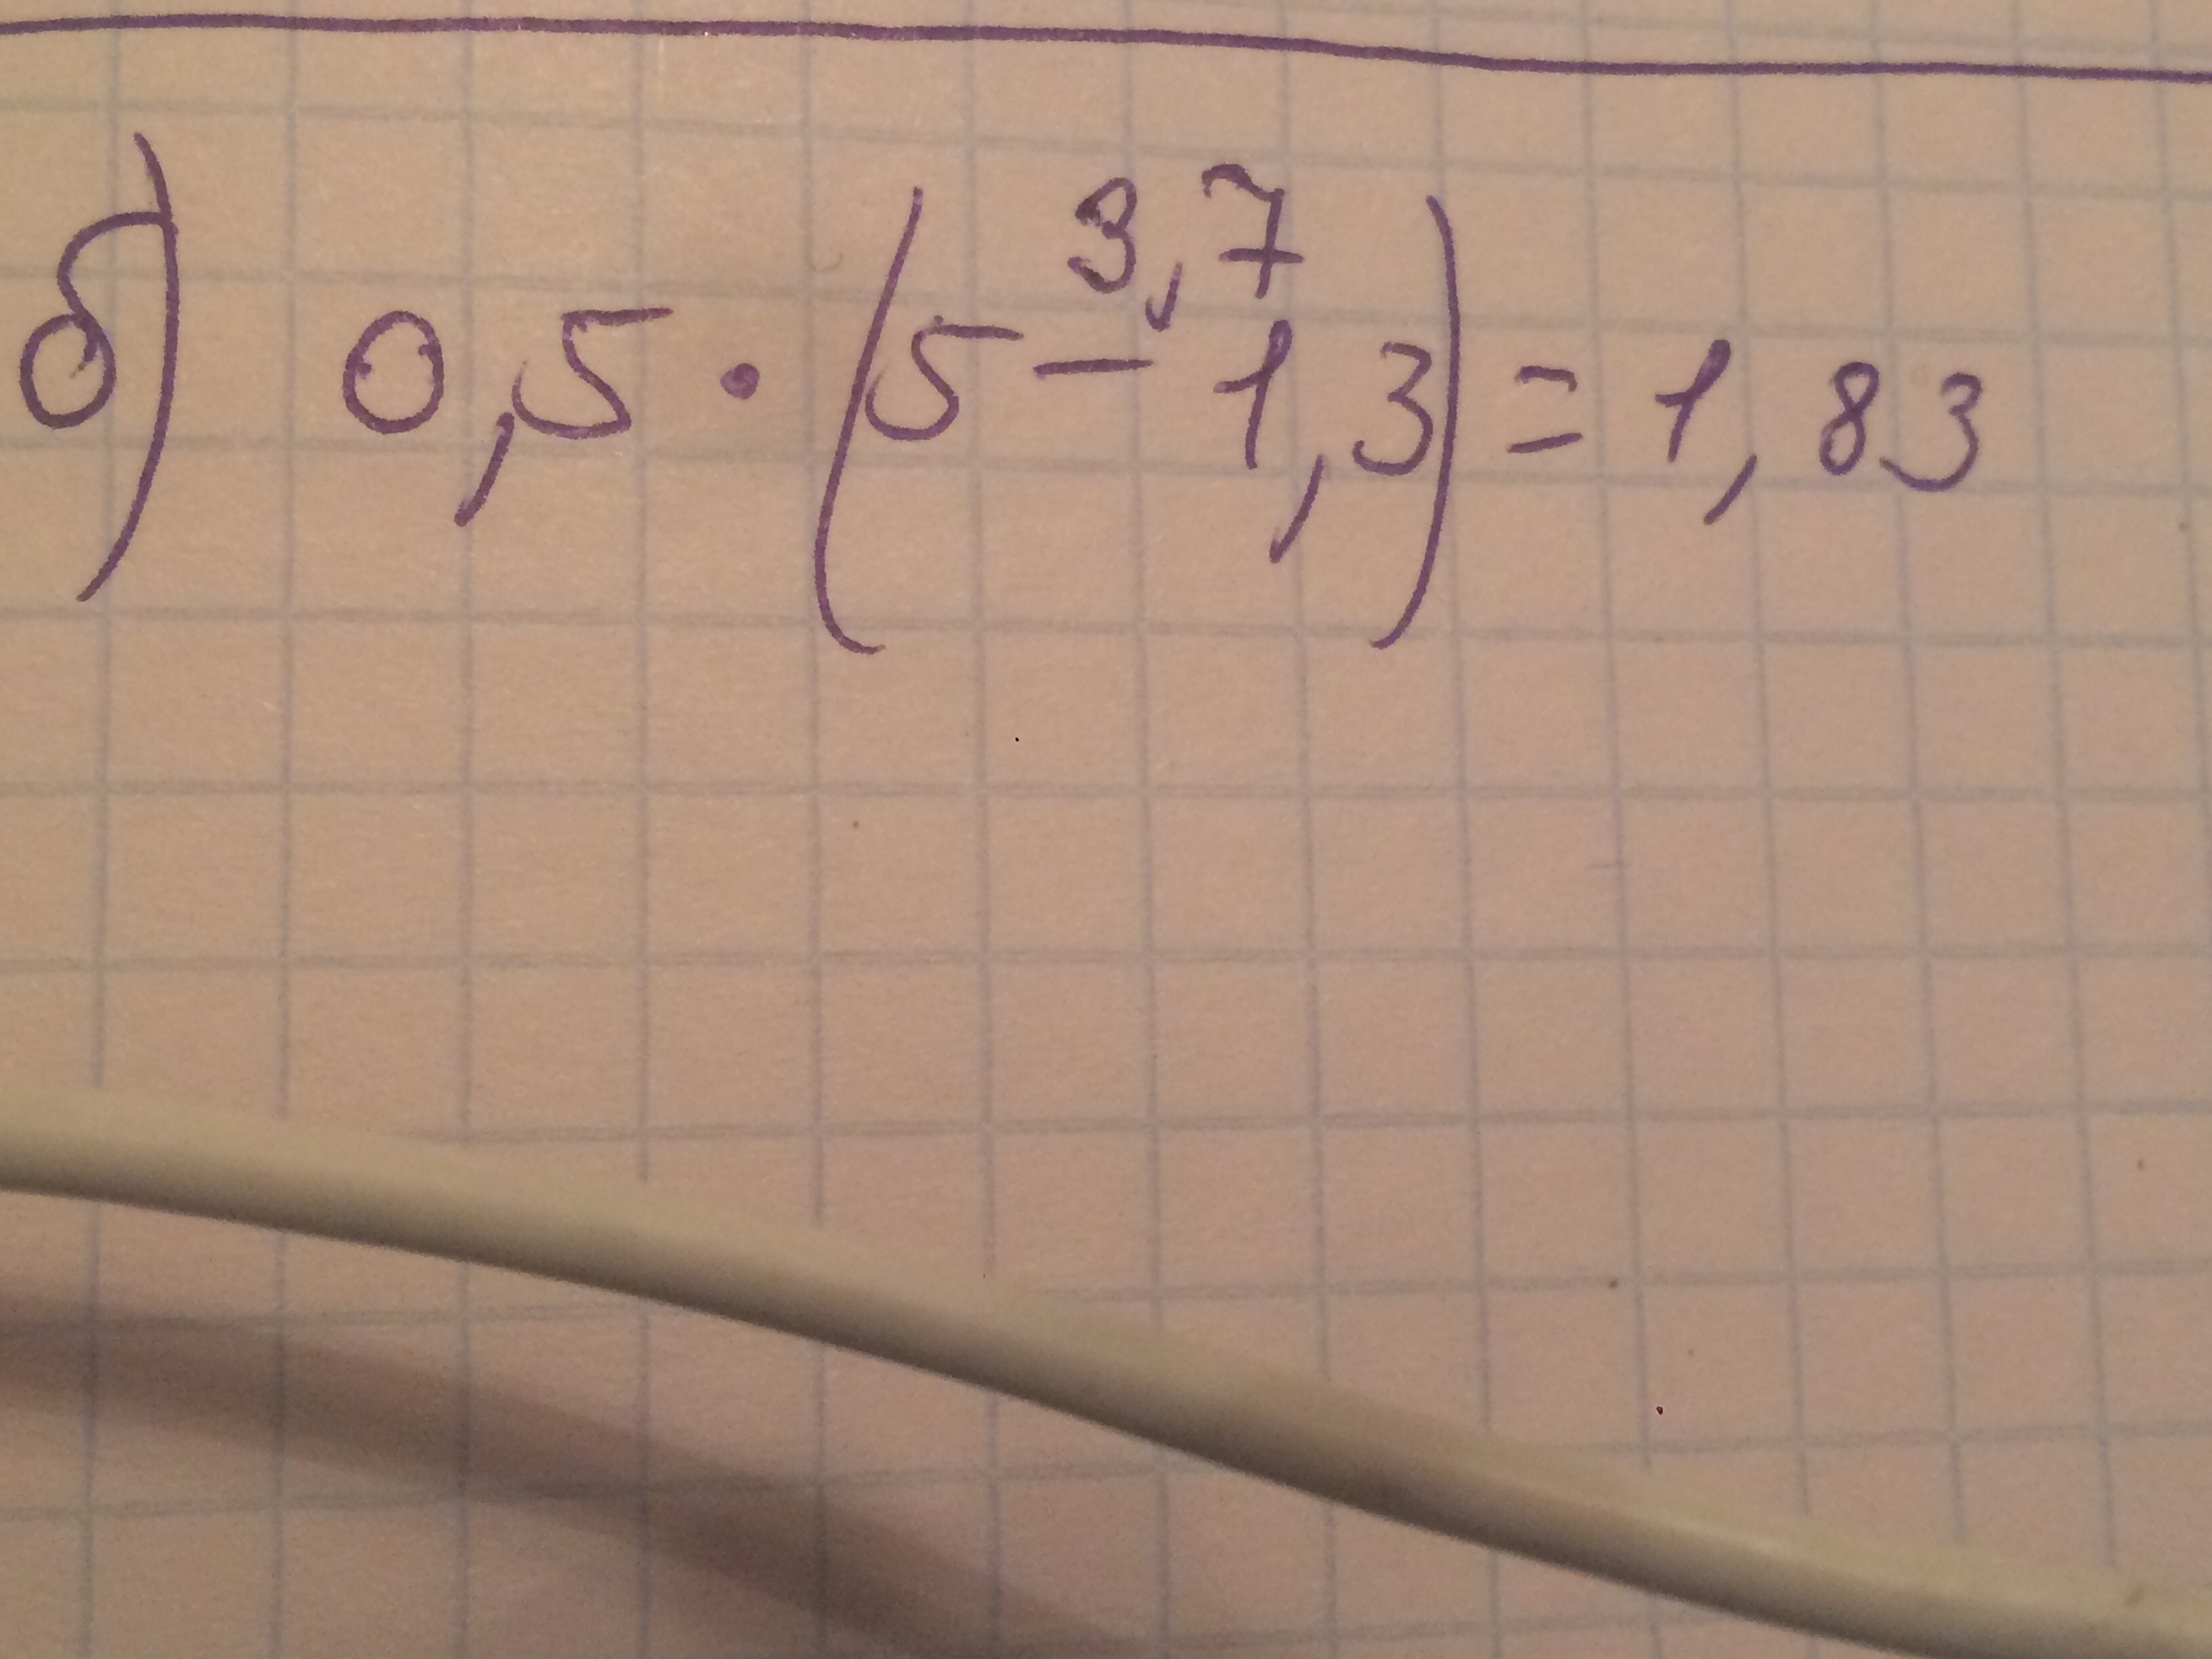 3,7
б) 0,5 · (5 - 1,3) = 1,83